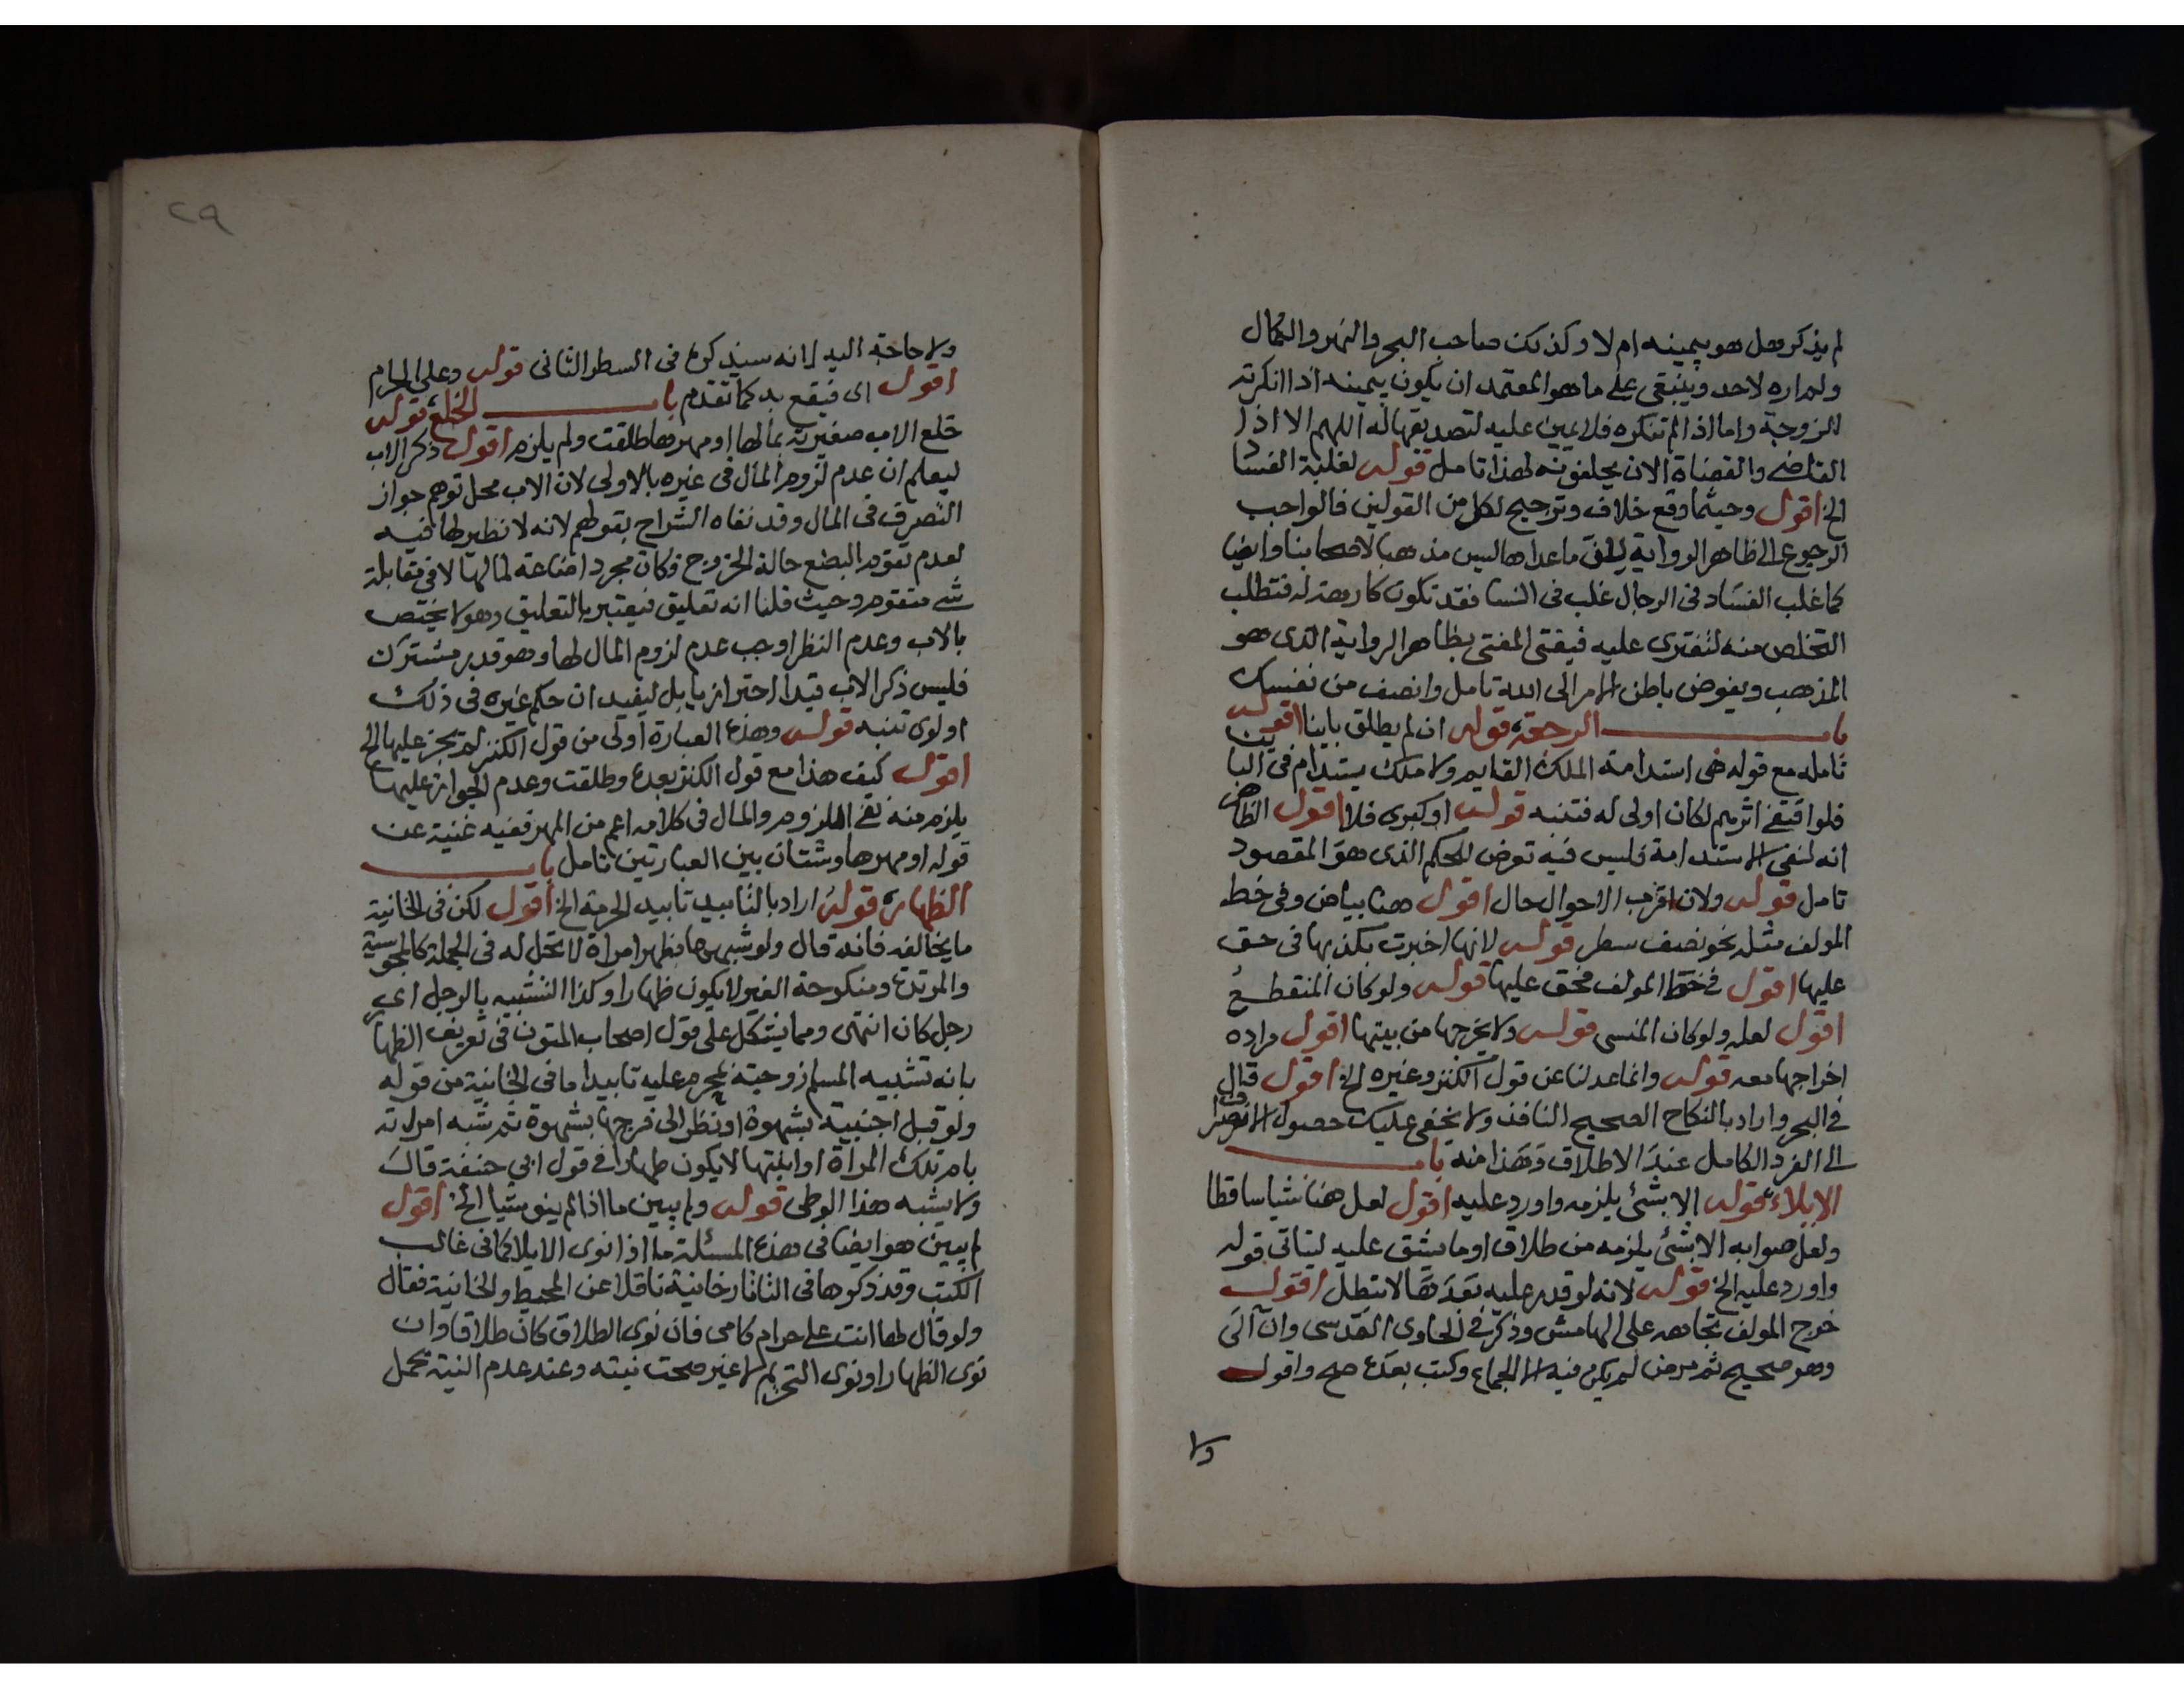 لم يذكر وهل هو بيمينه ام لا وكذلك صاحب البحر والنهر والكمال
ولم اره لاحد وينبغي على ما هو المعتمد ان يكون بيمينه اذا انكرته
الزوجة واما اذا لم تنكره فلا يمين عليه لتصديقها له اللهم الا اذا
القاضي والقضاة الان يحلفونه لهذا تامل قوله لغلبة الفساد
الخ اقول وحيثما وقع خلاف وترجيح لكل من القولين فالواجب
الرجوع الى ظاهر الرواية لان ما عداها ليس مذهبا لاصحابنا وايضا
كما غلب الفساد في الرجال غلب في النسا فقد تكون كارهة له فتطلب
التخلص منه لتفتري عليه فيفتي المفتي بظاهر الرواية الذي هو
المذهب ويفوض باطن الامر الى الله تامل وانصف من نفسك
باب الرجعة قوله ان لم يطلق باينا اقول
تامله مع قوله هي استدامة الملك القايم ولا ملك يستدام في الباين
فلو اقتفى اثرهم لكان اولى له فتنبه قوله او كبرى فلا اقول الظاهر
انه لنفي الاستدامة فليس فيه تعرض للحكم الذي هو المقصود
تامل قوله ولان اقرب الاحوال حال اقول هنا بياض وفي خط
المولف مثله نحو نصف سطر قوله لانها اخبرت بكذبها في حق
عليها اقول في خط المولف محق عليها قوله ولو كان المنقطع
اقول لعله ولو كان المنسي قوله ولا يخرجها من بيتها اقول مراده
اخراجها معه قوله وانما عدلنا عن قول الكنز وغيره الخ اقول قال
في البحر واراد بالنكاح الصحيح النافذ ولا يخفى عليك حصول الانصراف
الى الفرد الكامل عند الاطلاق وهذا منه باب
الايلاء قوله الا بشئ يلزمه واورد عليه اقول لعل هنا شيا ساقطا
ولعل صوابه الا بشئ يلزمه من طلاق او ما يشق عليه ليتاتى قوله
واورد عليه الخ قوله لانه لو قدر عليه بعدها لا تبطل اقول
خرج المولف تجاهه على الهامش وذكر في الحاوي القدسي وان آلى
وهو صحيح ثم مرض لم يكن فيه الا الجماع وكتب بعده صح واقول
ولا
٢٩
ولا حاجة اليه لانه سيذكره في السطر الثاني قوله وعلي الحرام
اقول اي فيقع به كما تقدم باب الخلع قوله
خلع الاب صغيرته بمالها او مهرها طلقت ولم يلزم اقول ذكر الاب
ليعلم ان عدم لزوم المال في غيره بالاولى لان الاب محل توهم جواز
التصرف في المال وقد نفاه الشراح بقولهم لانه لا نظر لها فيه
لعدم تقوم البضع حالة الخروج فكان مجرد اضاعة لمالها لا في مقابلة
شي متقوم وحيث قلنا انه تعليق فيعتبر بالتعليق وهو لا يختص
بالاب وعدم النظر اوجب عدم لزوم المال لها وهو قدر مشترك
فليس ذكر الاب قيدا احترازيا بل ليفيد ان حكم غيره في ذلك
اولوي تنبه قوله وهذه العبارة اولى من قول الكنز لم يجز عليها الخ
اقول كيف هذا مع قول الكنز بعده وطلقت وعدم الجواز عليها
يلزم منه نفي اللزوم والمال في كلامه اعم من المهر ففيه غنية عن
قوله او مهرها وشتان بين العبارتين تامل باب
الظهار قوله اراد بالتابيد تابيد الحرمة الخ اقول لكن في الخانية
ما يخالفه فانه قال ولو شبهها بظهر امراة لا تحل له في الجملة كالمجوسية
والمرتدة ومنكوحة الغير لا يكون ظهارا وكذا التشبيه بالرجل اي
رجل كان انتهى ومما يشكل على قول اصحاب المتون في تعريف الظهار
بانه تشبيه المسلم زوجته بمحرم عليه تابيدا ما في الخانية من قوله
ولو قبل اجنبية بشهوة او نظر الى فرجها بشهوة ثم شبه امراته
بام تلك المراة او ابنتها لا يكون ظهارا في قول ابي حنيفة قال
ولا يشبه هذا الوطى قوله ولم يبين ما اذا لم ينو شيا الخ اقول
لم يبين هو ايضا في هذه المسئلة ما اذا نوى الايلا كما في غالب
الكتب وقد ذكرها في التاتارخانية ناقلا عن المحيط والخانية فقال
ولو قال لها انت علي حرام كامي فان نوى الطلاق كان طلاقا وان
نوى الظهار او نوى التحريم لا غير صحت نيته وعند عدم النية يحمل